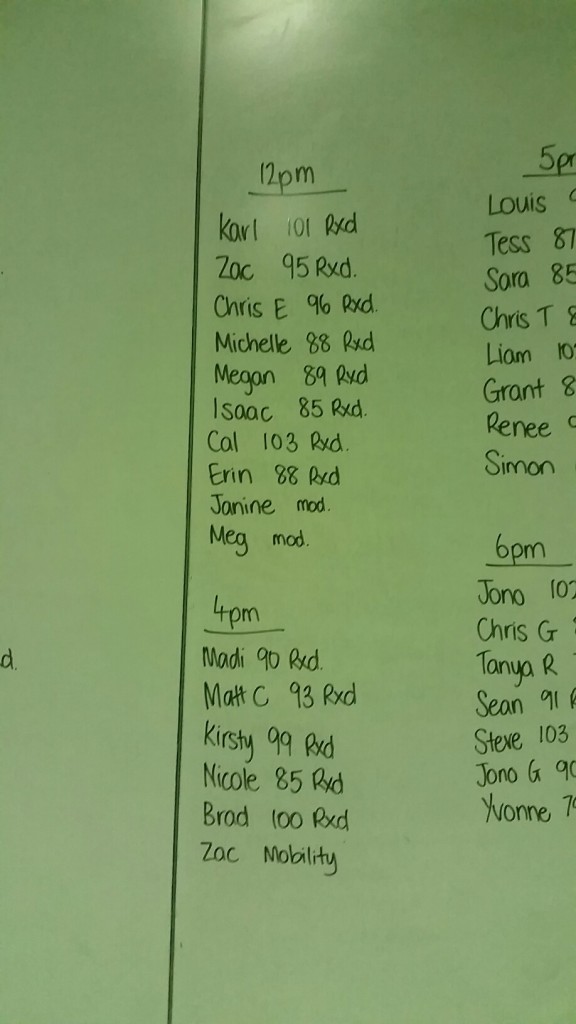 12pm
Karl 101 Rxd
Zac 95 Rxd.
Chris E 96 Rxd.
Michelle 88 Rxd
Megan 89 Rxd
Isaac 85 Rxd.
Cal 103 Rxd.
Erin 88 Rxd
Janine mod.
Meg mod.
4pm
Madi 90 Rxd.
Matt C 93 Rxd
Kirsty 99 Rxd
Nicole 85 Rxd
Brad 100 Rxd
Zac Mobility
Louis
Tess 87
Sara 85
Chris T
Liam
Grant
Renee
Simon
6pm
Jono
Chris G
Tanya R
Sean 91
Steve 103
Jono G 90
Yvonne